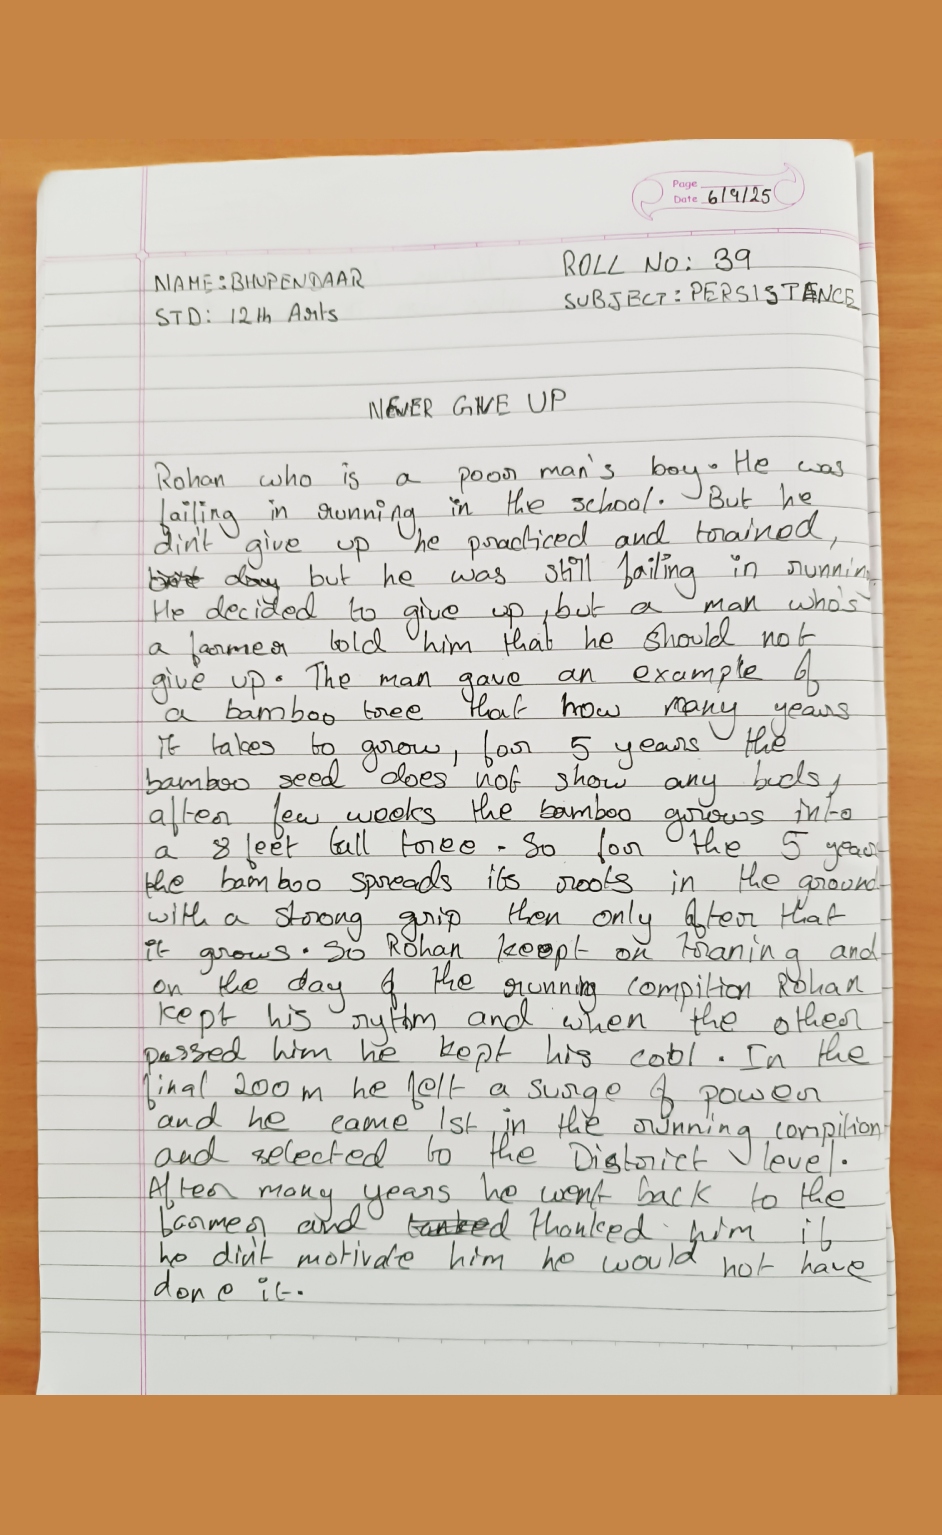 Page
Date 6/9/25
NAME: BHUPENDAAR
ROLL NO: 39
STD: 12th Arts
SUBJECT: PERSISTANCE
NEVER GIVE UP
Rohan who is a poor man's boy. He was
failing in running in the school. But he
din't give up he practiced and trained,
but he was still failing in runnin
He decided to give up, but a man who's
a farmer told him that he should not
give up. The man gave an example of
a bamboo tree that how many years
it takes to grow, for 5 years the
bamboo seed does not show any buds,
after few weeks the bamboo grows into
a 8 feet tall tree. So for the 5 years
the bamboo spreads its roots in the ground
with a strong grip then only after that
it grows. So Rohan keept on traning and
on the day of the running compition Rohan
kept his rythm and when the other
passed him he kept his cool. In the
final 200 m he felt a surge of power
and he came 1st in the running compition
and selected to the District level.
After many years he went back to the
farmer and thanked him if
he din't motivate him he would not have
done it.